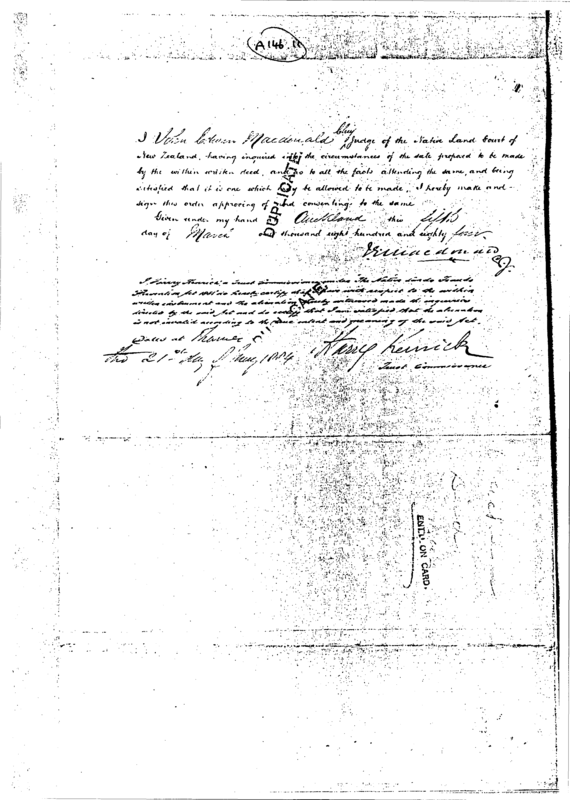 A 146. 11
I John Edwin Macdonald Chief Judge of the Native Land Court of
New Zealand, having inquired into the circumstances of the sale proposed to be made
by the within written deed, and as to all the facts attending the same, and being
satisfied that it is one which may be allowed to be made, I hereby make and
sign this order approving of and consenting to the same
Given under my hand at Auckland this fifth
day of March one thousand eight hundred and eighty four
J E Macdonald
C J.
DUPLICATE
I Harry Kenrick a Trust Commissioner under The Native Lands Frauds
Prevention Act do hereby certify that I have with respect to the within
written instrument and the alienation thereby witnessed made the inquiries
directed by the said Act and do certify that I am satisfied that the alienation
is not invalid according to the true intent and meaning of the said Act.
Dated at Thames
this 21st day of 1884
Harry Kenrick
Trust Commissioner
DUPLICATE
ENTD. ON CARD.